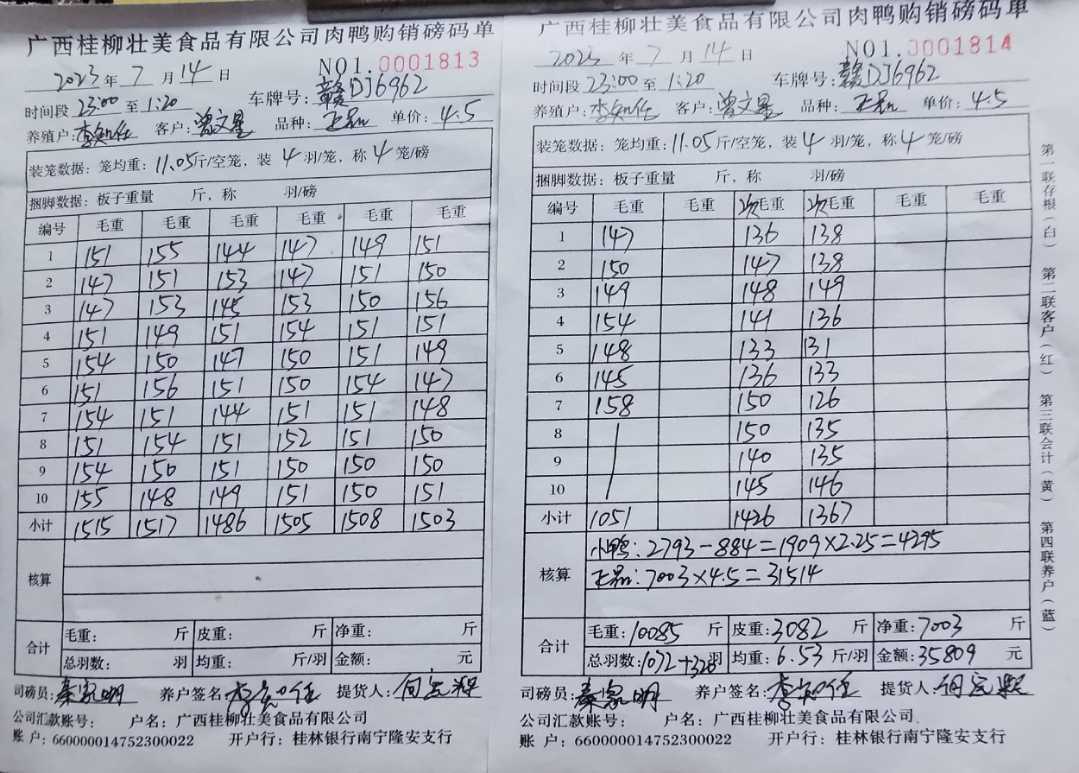 广西桂柳壮美食品有限公司肉鸭购销磅码单
NO1.0001813
2023年7月14日
时间段23:00至1:20 车牌号:赣DJ6962
养殖户:李知任 客户:曾文星 品种:正品 单价:4.5
装笼数据:笼均重:11.05斤/空笼,装4羽/笼,称4笼/磅
捆脚数据:板子重量 斤,称 羽/磅
编号 毛重 毛重 毛重 毛重 毛重 毛重
1 151 155 144 147 149 151
2 147 151 153 147 151 150
3 147 153 145 153 150 156
4 151 149 151 154 151 151
5 154 150 147 150 151 149
6 151 156 151 150 154 147
7 154 151 144 151 151 148
8 151 154 151 152 151 150
9 154 150 151 150 150 150
10 155 148 149 151 150 151
小计 1515 1517 1486 1505 1508 1503
核算
合计 毛重: 斤 皮重: 斤 净重: 斤
总羽数: 羽 均重: 斤/羽 金额: 元
司磅员:秦家明 养户签名:李知任 提货人:
公司汇款账号: 户名:广西桂柳壮美食品有限公司
账 户:660000014752300022 开户行:桂林银行南宁隆安支行
广西桂柳壮美食品有限公司肉鸭购销磅码单
NO1.0001814
2023年7月14日
时间段23:00至1:20 车牌号:赣DJ6962
养殖户:李知任 客户:曾文星 品种:正品 单价:4.5
装笼数据:笼均重:11.05斤/空笼,装4羽/笼,称4笼/磅
捆脚数据:板子重量 斤,称 羽/磅
编号 毛重 毛重 次毛重 次毛重 毛重 毛重
1 147 136 138
2 150 147 138
3 149 148 149
4 154 141 136
5 148 133 131
6 145 136 133
7 158 150 126
8 150 135
9 140 135
10 145 146
小计 1051 1426 1367
核算 小鸭:2793-884=1909×2.25=4295
正品:7003×4.5=31514
合计 毛重:10085斤 皮重:3082斤 净重:7003斤
总羽数:1072+328羽 均重:6.53斤/羽 金额:35809元
司磅员:秦家明 养户签名:李知任 提货人:
公司汇款账号: 户名:广西桂柳壮美食品有限公司
账 户:660000014752300022 开户行:桂林银行南宁隆安支行
第一联存根(白) 第二联客户(红) 第三联会计(黄) 第四联养户(蓝)